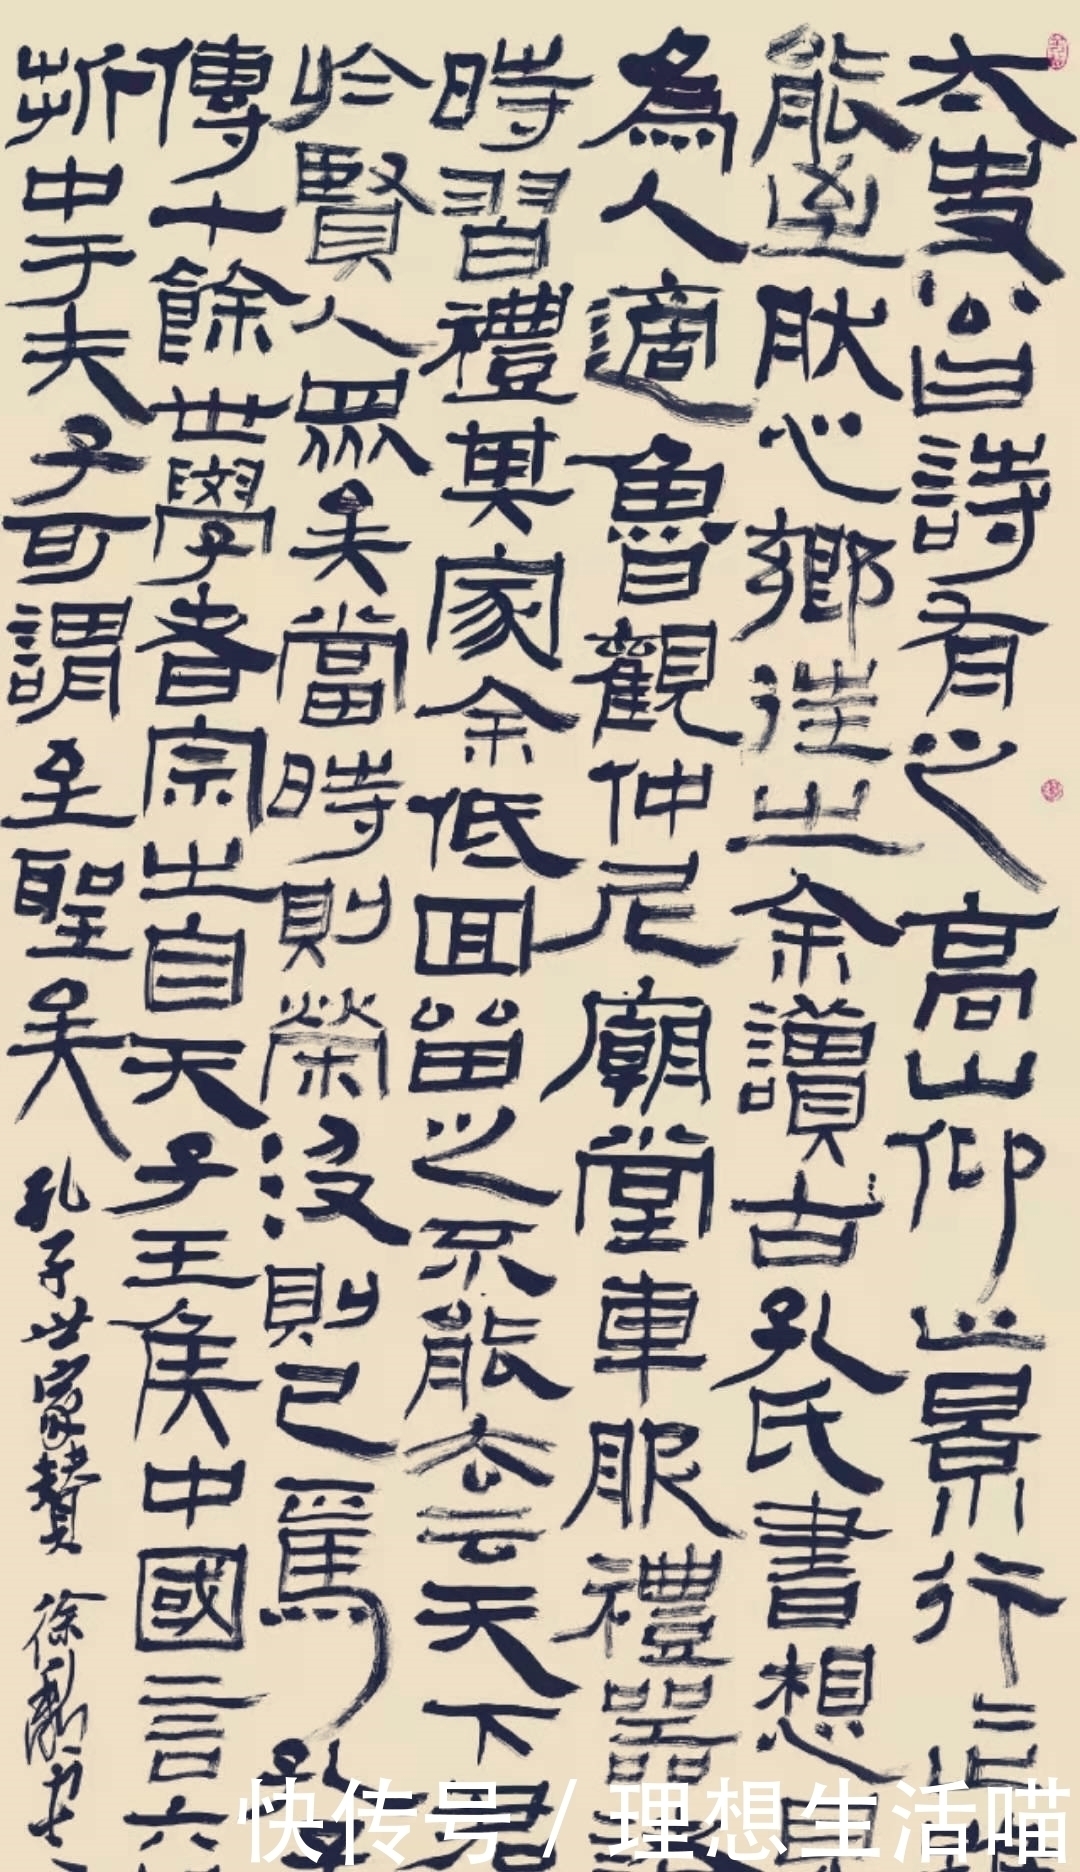 太史公曰詩有之高山仰止景行
能至肰心鄉往之余讀古孔氏書想
為人適魯觀仲尼廟堂車服禮器
時習禮其家余低回留之不能去云天下君
於賢人眾矣當時則榮沒則已焉孔
傳十餘世學者宗之自天子王侯中國言六
折中于夫子可謂至聖矣
孔子世家贊 徐利
快传号 / 理想生活喵